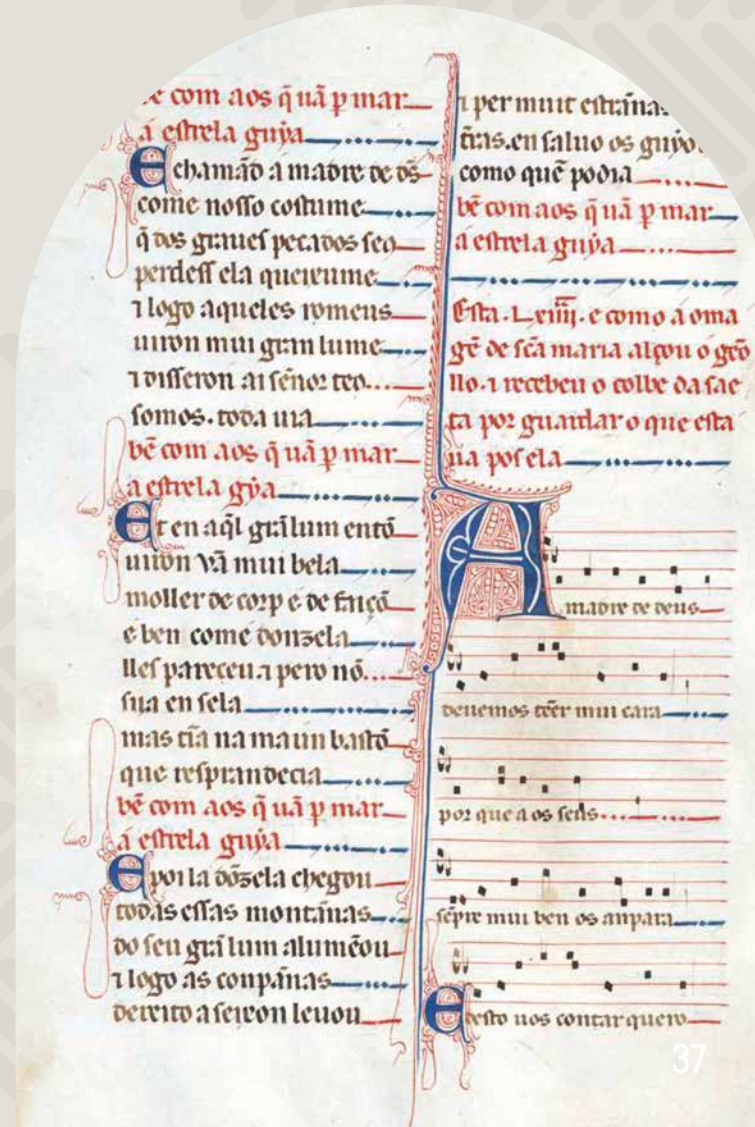 bẽ com aos q̃ uã p mar
a estrela guỹa
E chamãd a madre de d̃s
come nosso costume
q̃ dos graues pecados seo
perdess ela queixume
⁊ logo aqueles romeus
uiron mui gran lume
⁊ disseron ai sẽnor teo
somos. toda uia
bẽ com aos q̃ uã p mar
a estrela gỹa
Et en aq̃l grã lum entõ
uiron vã mui bela
moller de corp e de faiçõ
e ben come donzela
lles pareceu. ⁊ pero nõ
sija en sela
mas tĩa na maun bastõ
que resprandecia
bẽ com aos q̃ uã p mar
a estrela guỹa
E poila dõzela chegou
todas essas montãnas
do seu grã lum alumẽou
⁊ logo as conpãnas
dereito a seixon leuou
⁊ per muit estrãnas
t̃ras. en saluo os
como quẽ podia
bẽ com aos q̃ uã p mar
a estrela guỹa
Esta. Lxiiii. e como a oma
gẽ de sc̃a maria alçou o gẽo
llo. ⁊ recebeu o colbe da sae
ta por guardar o que esta
ua pos ela
A madre de deus
deuemos tẽer mui cara
por que a os seus
sẽpre mui ben os anpara
E desto uos contar quero
37